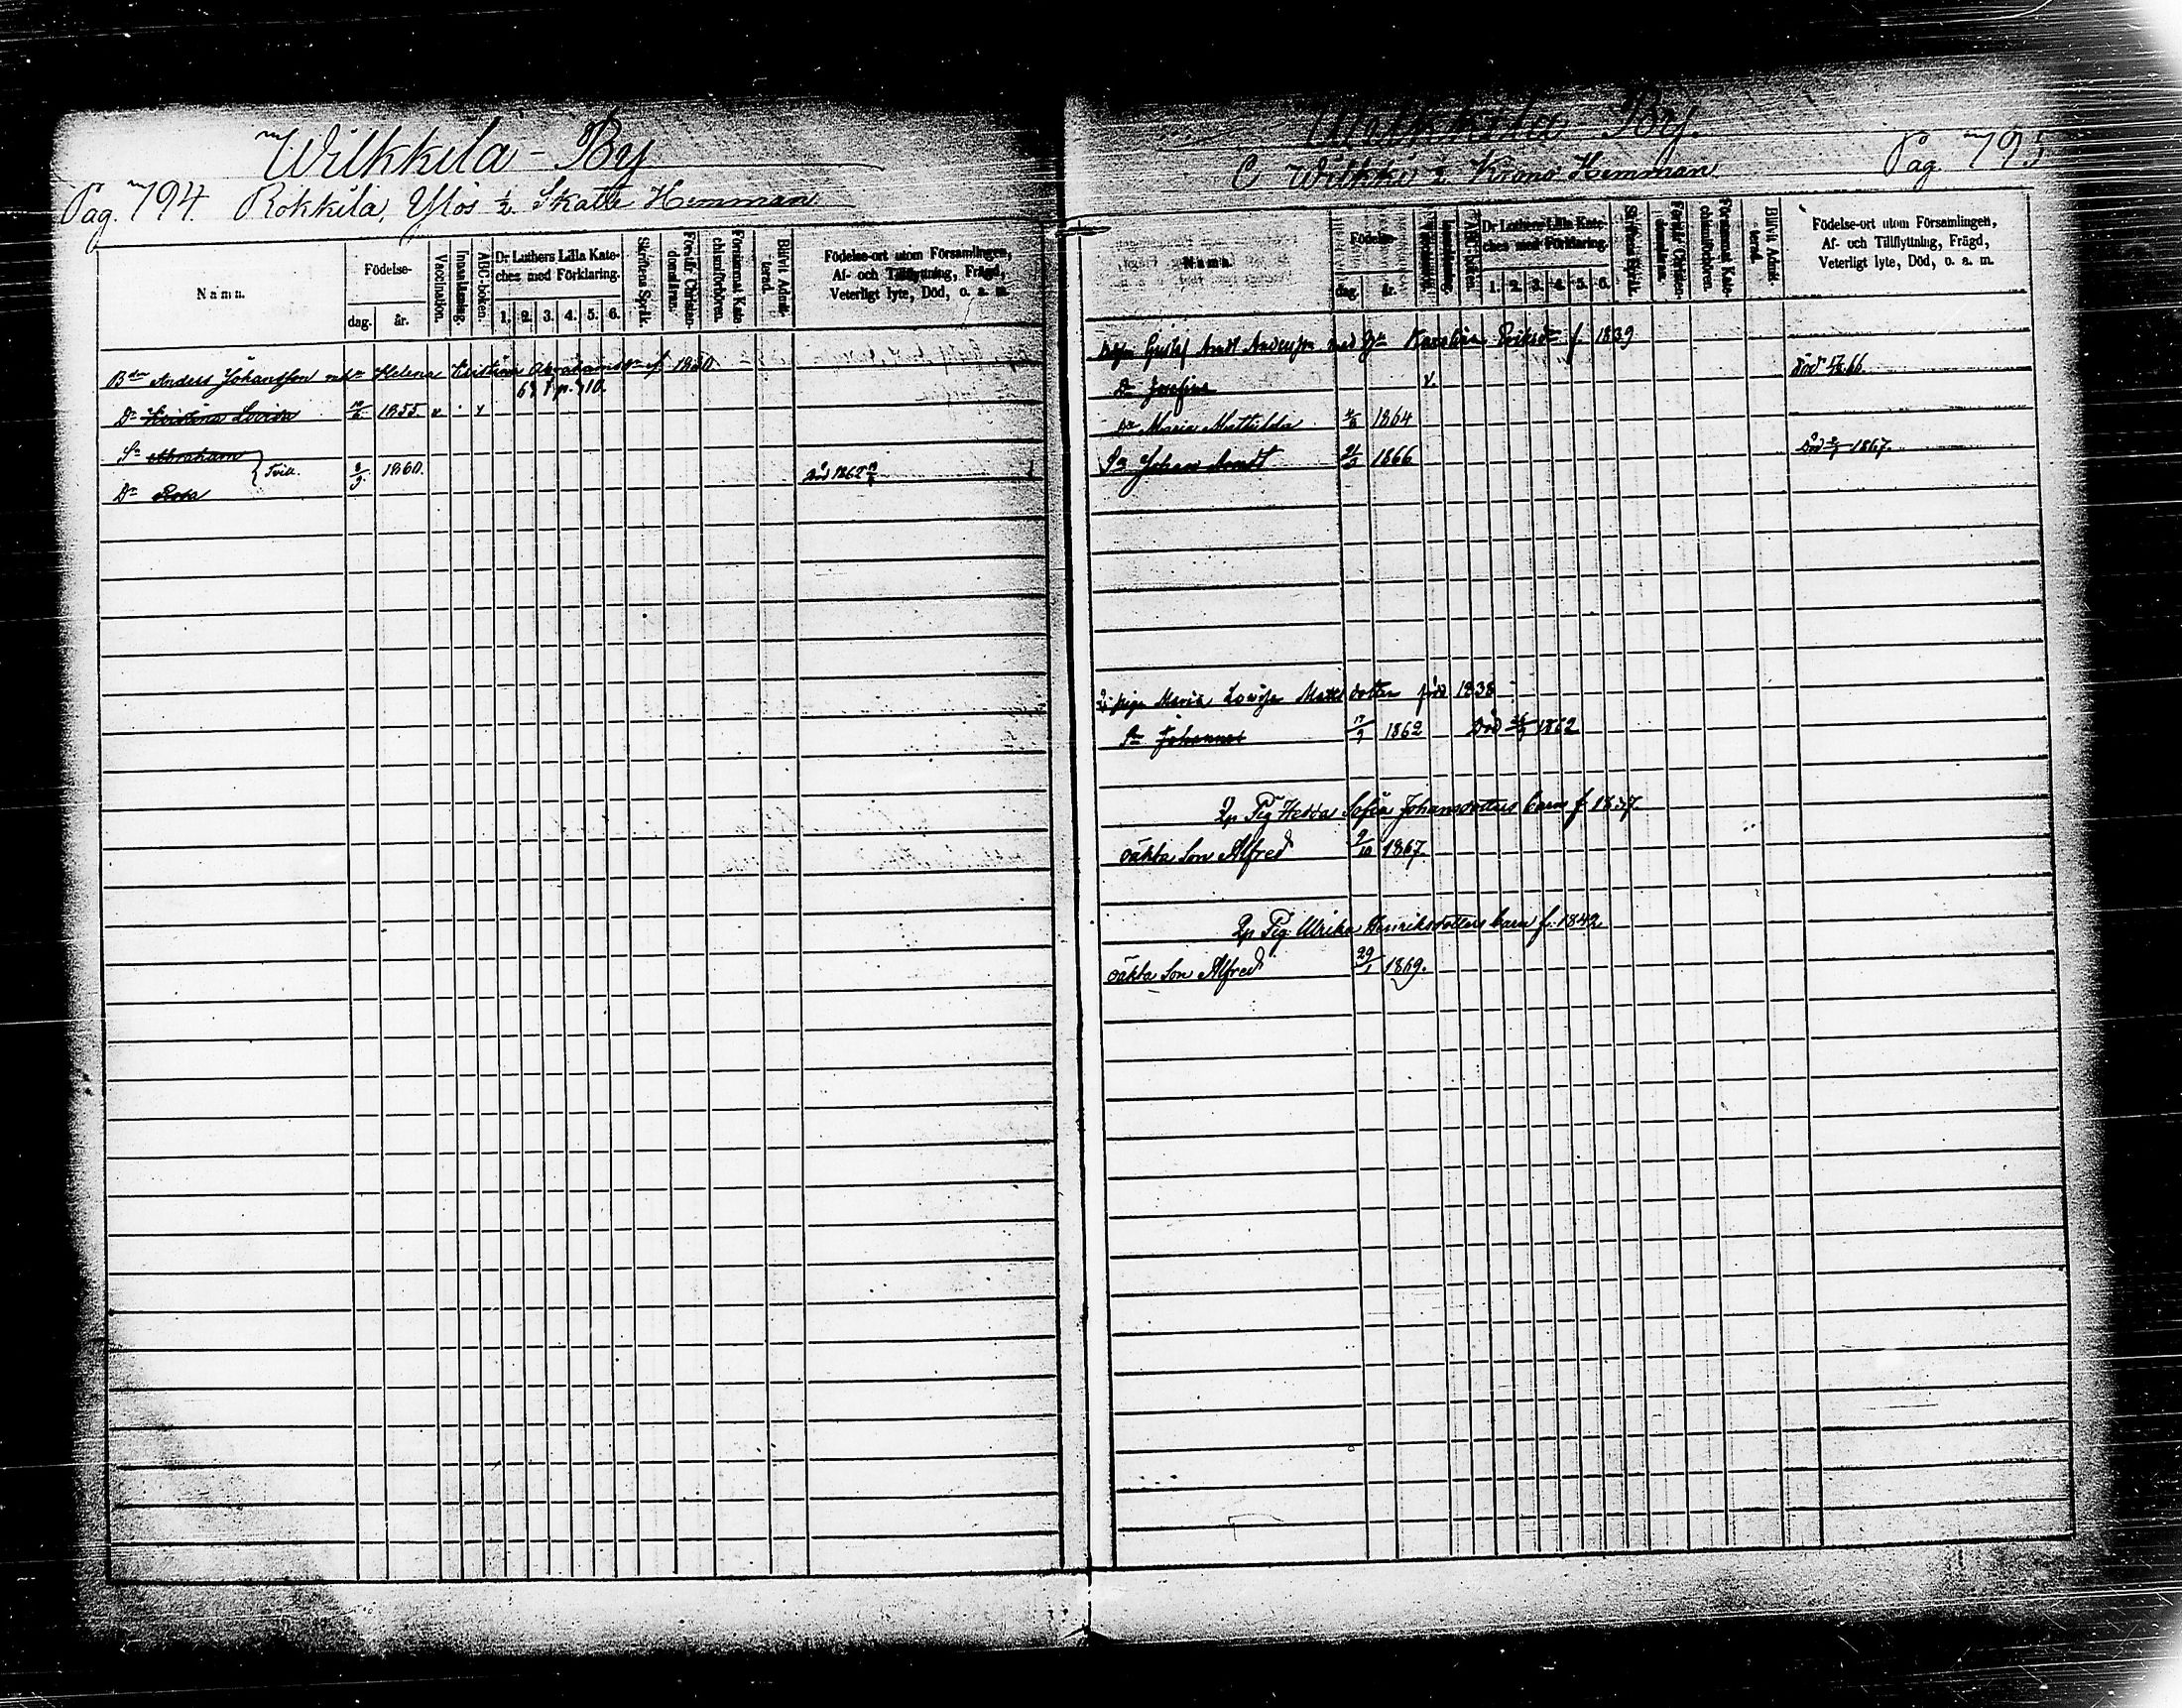 Wilkkila - By
Pag. 794. Rokkila, Ylös ½ Skatte Hemman
Namn.
Födelse-
dag. år.
Vaccination.
Innanläsning.
ABC-boken.
Dr Luthers Lilla Kate-
ches med Förklaring.
1. 2. 3. 4. 5. 6.
Skriftens Språk.
Förstår Christen-
domsläran.
Försummat Kate-
chismiförhören.
Blifvit Admit-
terad.
Födelse-ort utom Församlingen,
Af- och Tillflyttning, Frägd,
Veterligt lyte, Död, o. a. m.
Bden Anders Johansson m hu Helena Kristina Abrahamsdr f. 1830
69 p. 710.
Dr Kristina Lovisa 1855 v
Sn Abraham
Tvill. 8/9 1860. död 1862
Dr Rosa
Wilkkila By.
C Wilkki ½ Krono Hemman Pag. 795
Namn.
Födelse-
dag. år.
Vaccination.
Innanläsning.
ABC-boken.
Dr Luthers Lilla Kate-
ches med Förklaring.
1. 2. 3. 4. 5. 6.
Skriftens Språk.
Förstår Christen-
domsläran.
Försummat Kate-
chismiförhören.
Blifvit Admit-
terad.
Födelse-ort utom Församlingen,
Af- och Tillflyttning, Frägd,
Veterligt lyte, Död, o. a. m.
Gustaf Arndt Andersson med Karolina Eriksdr f. 1839
Dr Josefina v. Död 66
Dr Maria Mathilda 1864
Sn Johan Arndt 21/3 1866 Död 1867.
pigan Maria Lovisa Mattsdotter född 1838
Sn Johannes 17/9 1862 Död 1862
Qp Pig Hedda Sofia Johansdotters barn f. 1837
oäkta Son Alfred 9/10 1867.
Qp Pig. Ulrika Henriksdotters barn f. 1842
oäkta Son Alfred 29/1 1869.